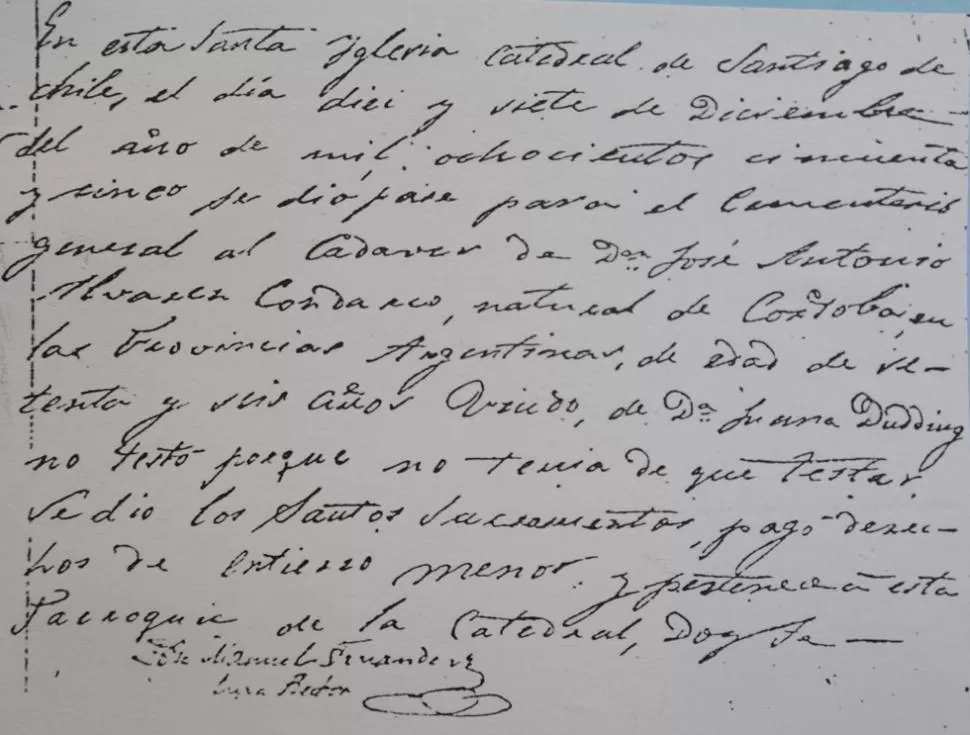 En esta Santa Yglesia Catedral de Santiago de
chile, el día diez y siete de Diciembre
del año de mil ochocientos cincuenta
y cinco se dio pase para el Cementerio
general al Cadaver de Dⁿ José Antonio
Alvares Condarco, natural de Cordoba, en
las Provincias Argentinas, de edad de se-
tenta y seis años Viudo, de Dª Juana Dudding
no testó porque no tenia de que testar
se dio los Santos Sacramentos, pagó derec-
hos de entierro menor y pertenece a esta
Parroquia de la Catedral, Doy fe —
José Manuel Fernandez
Cura Rector